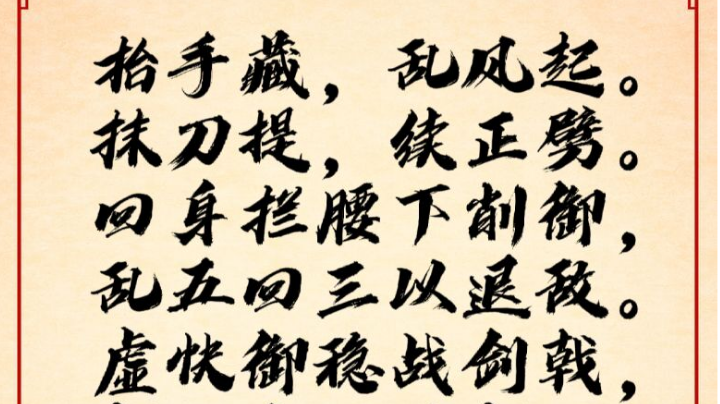 抬手藏，乱风起。
抹刀提，续正劈。
回身拦腰下削御，
乱五回三以退敌。
虚快御稳战剑戟，